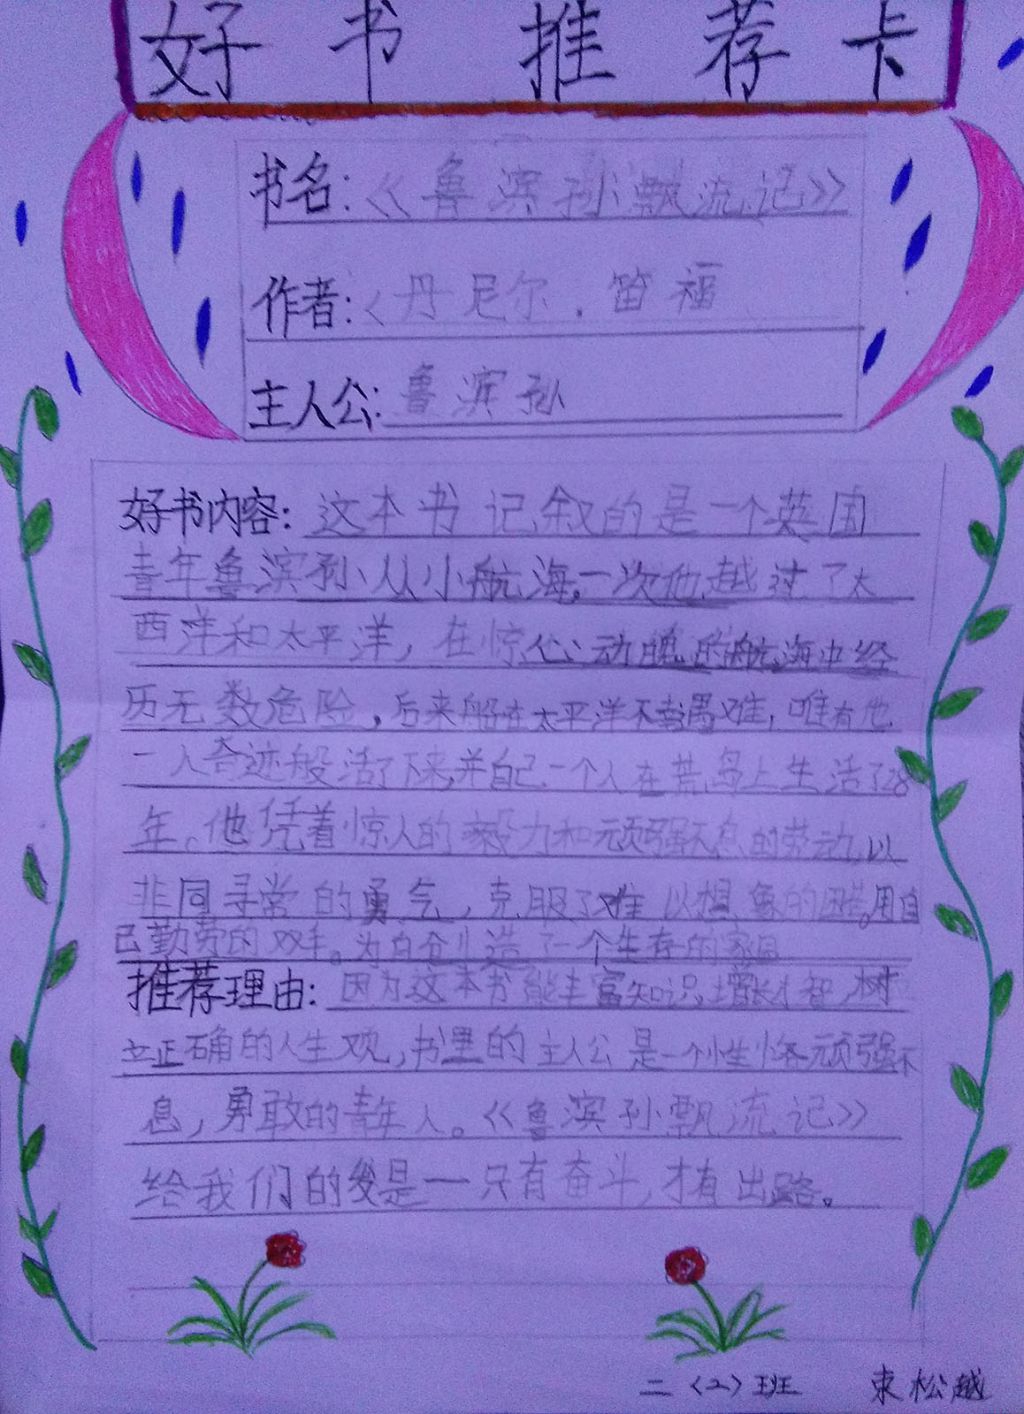 好书推荐卡
书名：《鲁滨孙飘流记》
作者：〈丹尼尔.笛福
主人公：鲁滨孙
好书内容：这本书记叙的是一个英国
青年鲁滨孙从小航海，一次他越过了太
西洋和太平洋，在惊心动魄的航海中经
历无数危险，后来船在太平洋不幸遇难，唯有他
一人奇迹般活了下来，并自己一个人在荒岛上生活了28
年。他凭着惊人的毅力和顽强不息的劳动，以
非同寻常的勇气，克服了难以想象的困苦。用自
己勤劳的双手。为自个儿造了一个生存的家园
推荐理由：因为这本书能丰富知识，增长才智，树
立正确的人生观，书里的主人公是一个性格顽强不
息，勇敢的青年人。《鲁滨孙飘流记》
给我们的是一只有奋斗，才有出路。
二〈2〉班 束松越